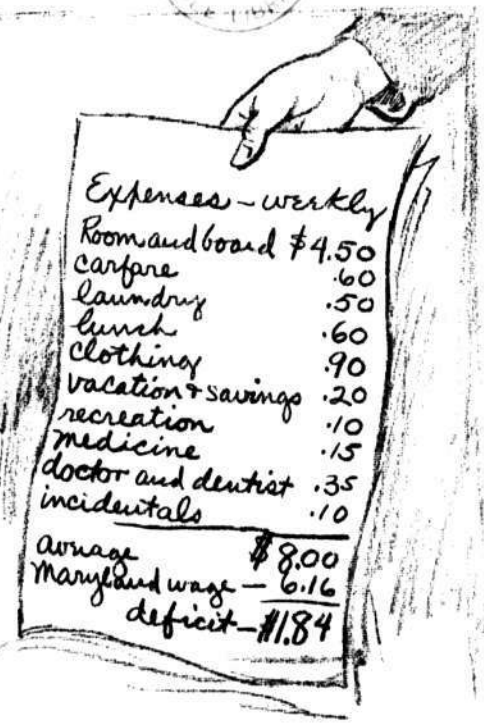 Expenses - weekly
Room and board $4.50
carfare .60
laundry .50
lunch .60
clothing .90
vacation + savings .20
recreation .10
medicine .15
doctor and dentist .35
incidentals .10
average $8.00
Maryland wage - 6.16
deficit - $1.84